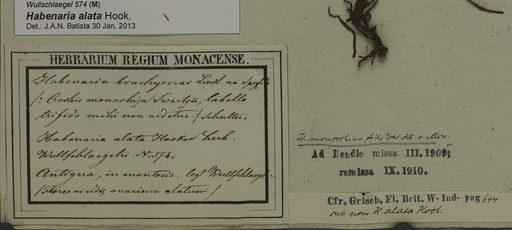 Wullschlaegel 574 (M)
Habenaria alata Hook.
Det.: J.A.N. Batista 30 Jan. 2013
HERBARIUM REGIUM MONACENSE.
Habenaria brachyceras
/: Orchis monorhiza Swartzii, labello
trifido mihi non videtur. /: Schultes.
Habenaria alata Hooker herb.
Wullschlaegel N. 574.
Antigua, in montosis. leg. Wullschlaegel
/ flores virides ovarium alatum /
H. monorrhiza fide
Ad Rendle missa III. 1909;
remissa IX. 1910.
Cfr. Griseb. Fl. Brit. W-Ind- pag 644
sub nom H. alata Hook.